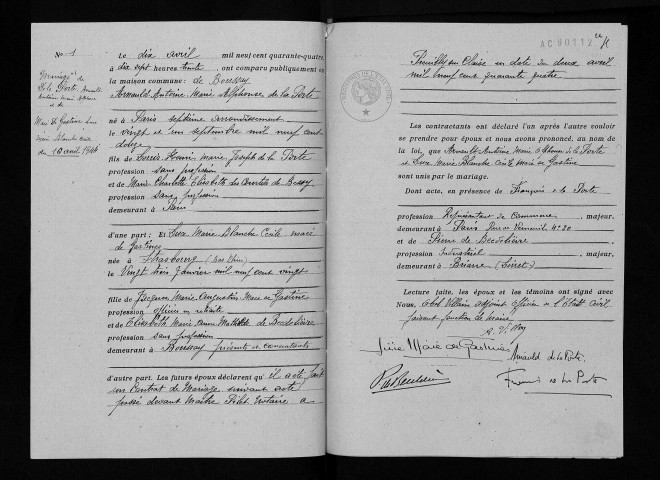 No 1
Mariage de
De la Porte Arnauld
Antoine Marie Alphonse
et de
Macé de Gastines Luce
Marie Blanche Cécile
du 10 avril 1944
Le dix avril mil neuf cent quarante-quatre
à dix sept heures trente, ont comparu publiquement en
la maison commune: de Boussay
Arnauld Antoine Marie Alphonse de la Porte
né à Paris septième arrondissement
le vingt et un septembre mil neuf cent
douze
fils de Henri Marie Joseph de la Porte
profession sans profession
et de Marie Charlotte Elisabeth de Bessay
profession sans profession
demeurant à Paris
d'une part: Et Luce Marie Blanche Cécile Macé
de Gastines
née à Strasbourg (Bas Rhin)
le Vingt trois Janvier mil neuf cent vingt
fille de Jacques Marie Augustin Macé de Gastines
profession officier en retraite
et de Elisabeth Marie Anne Mathilde de Becdelièvre
profession sans profession
demeurant à Boussay présents et consentants
d'autre part. Les futurs époux déclarent qu'il a été fait
un Contrat de Mariage suivant acte
passé devant Maître Notaire à
AC 90112
Preuilly sur Claise en date du deux avril
mil neuf cent quarante quatre
Les contractants ont déclaré l'un après l'autre vouloir
se prendre pour époux et nous avons prononcé, au nom de
la loi, que Arnauld Antoine Marie Alphonse de la Porte
et Luce Marie Blanche Cécile Macé de Gastines
sont unis par le mariage.
Dont acte, en présence de François de la Porte
profession Représentant de Commerce, majeur,
demeurant à Paris Rue Verneuil No 20
et de Pierre de Becdelièvre
profession Industriel, majeur,
demeurant à Briare (Loiret)
Lecture faite, les époux et les témoins ont signé avec
Nous, Abel Villain adjoint officier de l'Etat Civil
faisant fonction de Maire
Luce Macé de Gastines
Arnauld de la Porte
François de la Porte